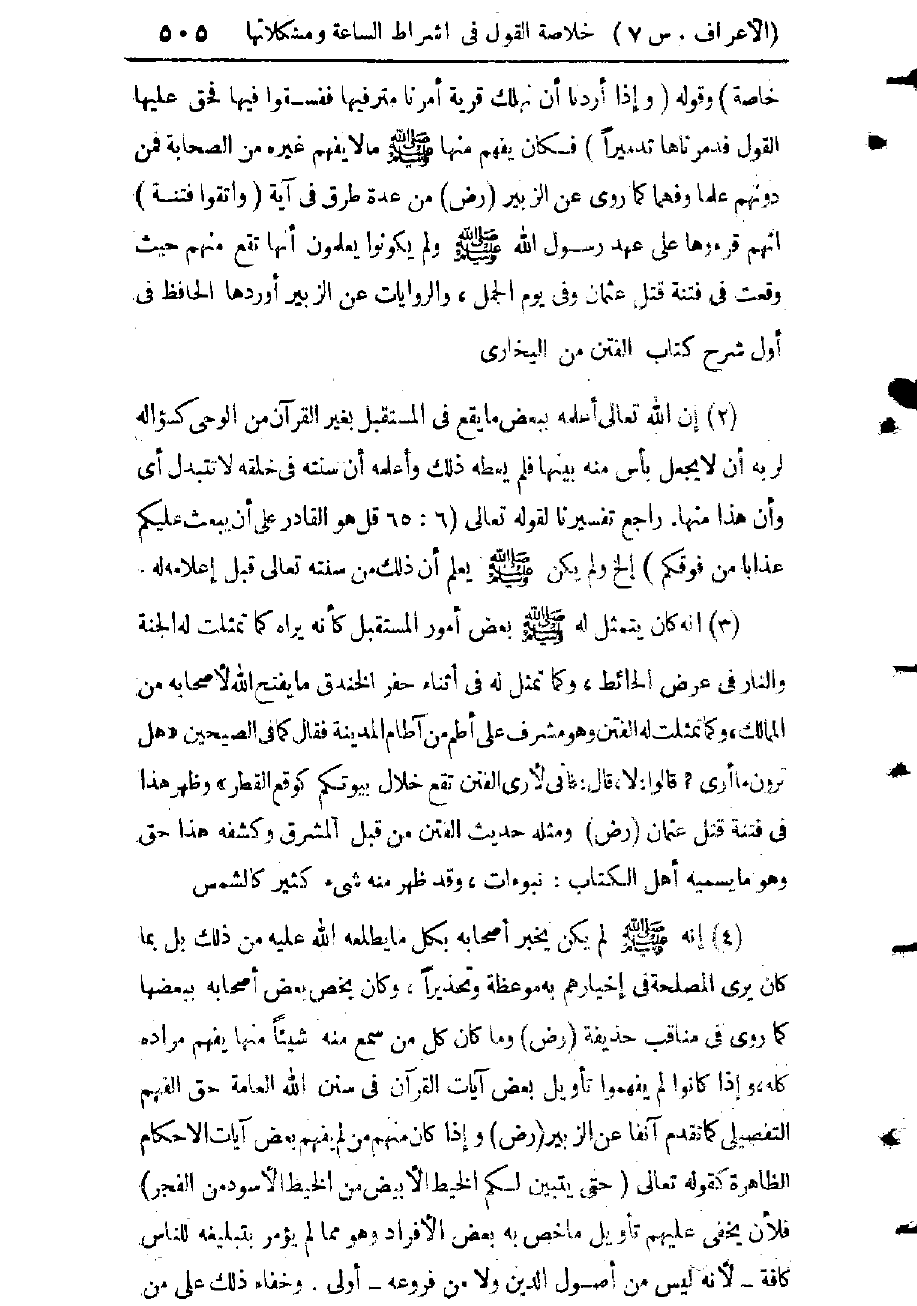 (الاعراف . س ٧) خلاصة القول فى اشراط الساعة ومشكلاتها ٥٠٥
خاصة) وقوله (وإذا أردنا أن نهلك قرية أمرنا مترفيها ففسقوا فيها فحق عليها
القول فدمرناها تدميراً) فكان يفهم منها ﷺ مالا يفهم غيره من الصحابة فمن
دونهم علما وفهما كما روى عن الزبير (رض) من عدة طرق فى آية (واتقوا فتنة)
انهم قرءوها على عهد رسول الله ﷺ ولم يكونوا يعلمون أنها تقع منهم حيث
وقعت فى فتنة قتل عثمان وفى يوم الجمل ، والروايات عن الزبير أوردها الحافظ فى
أول شرح كتاب الفتن من البخارى
(٢) إن الله تعالى أعلمه ببعض مايقع فى المستقبل بغير القرآن من الوحى كسؤاله
لربه أن لا يجعل بأس منه بينها فلم يعطه ذلك وأعلمه أن سنته فى خلقه لا تتبدل أى
وأن هذا منها. راجع تفسيرنا لقوله تعالى (٦ : ٦٥ قل هو القادر على أن يبعث عليكم
عذابا من فوقكم) إلخ ولم يكن ﷺ يعلم أن ذلك من سنته تعالى قبل إعلامه له .
(٣) انه كان يتمثل له ﷺ بعض أمور المستقبل كأنه يراه كما تمثلت له الجنة
والنار فى عرض الحائط ، وكما تمثل له فى أثناء حفر الخندق مايفتح الله لأصحابه من
الممالك، وكما تمثلت له الفتن وهو مشرف على أطم من آطام المدينة فقال كما فى الصحيحين «هل
ترون ما أرى ؟ قالوا: لا، قال: فانى لأرى الفتن تقع خلال بيوتكم كوقع القطر» وظهر هذا
فى فتنة قتل عثمان (رض) ومثله حديث الفتن من قبل المشرق وكشفه هذا حق
وهو مايسميه أهل الكتاب : نبوءات ، وقد ظهر منه شىء كثير كالشمس
(٤) إنه ﷺ لم يكن يخبر أصحابه بكل مايطلعه الله عليه من ذلك بل بما
كان يرى المصلحة فى إخبارهم به موعظة وتحذيراً ، وكان يخص بعض أصحابه ببعضها
كما روى فى مناقب حذيفة (رض) وما كان كل من سمع منه شيئاً منها يفهم مراده
كله، وإذا كانوا لم يفهموا تأويل بعض آيات القرآن فى سنن الله العامة حق الفهم
التفصيلى كما تقدم آنفا عن الزبير (رض) وإذا كان منهم من لم يفهم بعض آيات الاحكام
الظاهرة كقوله تعالى (حتى يتبين لكم الخيط الأبيض من الخيط الأسود من الفجر)
فلأن يخفى عليهم تأويل ماخص به بعض الأفراد وهو مما لم يؤمر بتبليغه للناس
كافة ــ لأنه ليس من أصول الدين ولا من فروعه ــ أولى . وخفاء ذلك على من